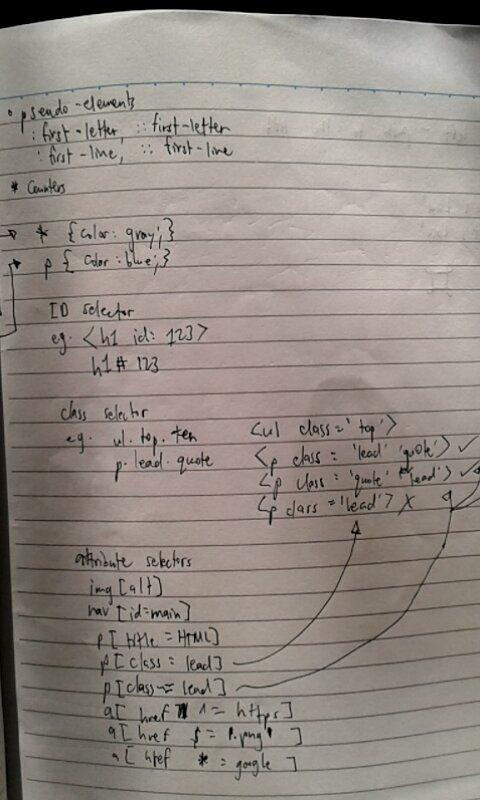 • pseudo-elements
: first-letter, :: first-letter
: first-line, :: first-line
* Counters
→ * {color: gray;}
p { color: blue;}
ID selector
eg. <h1 id: 123>
h1 # 123
class selector
eg. ul. top. ten
p. lead. quote
<ul class='top'>
<p class = 'lead' 'quote'> ✓
<p class = 'quote' 'lead'> ✓
<p class = 'lead'> X
attribute selectors
img [alt]
nav [id=main]
p[ title = HTML]
p[class = lead]
p[class ~= lead]
a[ href ^= https]
a[href $ = ".png" ]
a[ href * = google ]